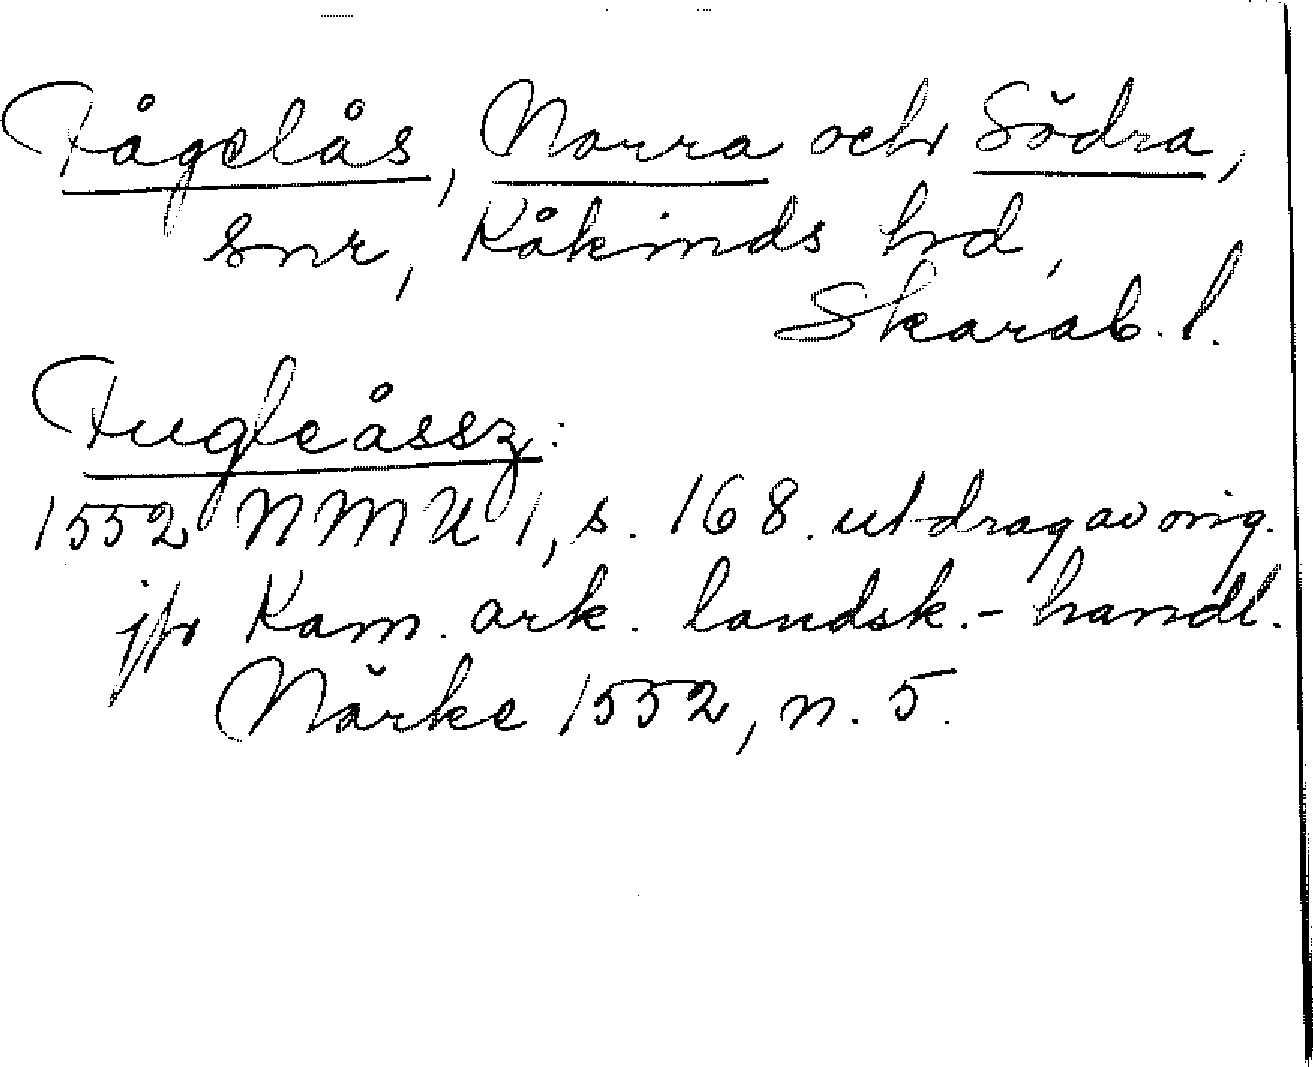 Fågelås, Norra och Södra,
snr, Kåkinds hd,
Skarab. l.
Fugleåssz:
1552 NMU 1, s. 168. utdrag av orig.
jfr Kam. ark. landsk.-handl.
Närke 1552, n. 5.